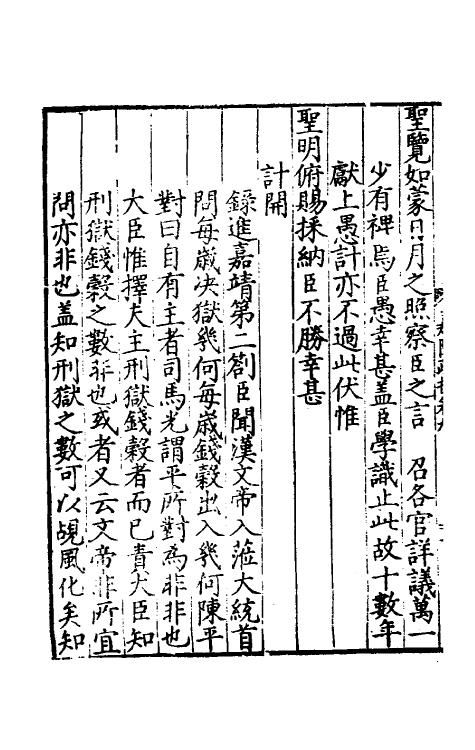 聖覽如蒙日月之照察臣之言　召各官詳議萬一
少有裨焉臣愚幸甚盖臣學識止此故十數年
獻上愚計亦不過此伏惟
聖明俯賜採納臣不勝幸甚
計開
錄進嘉靖第二劄臣聞漢文帝入蒞大統首
問每歲决獄幾何每歲錢穀出入幾何陳平
對曰自有主者司馬光謂平所對為非非也
大臣惟擇夫主刑獄錢穀者而已責大臣知
刑獄錢穀之數非也或者又云文帝非所宜
問亦非也盖知刑獄之數可以覘風化矣知